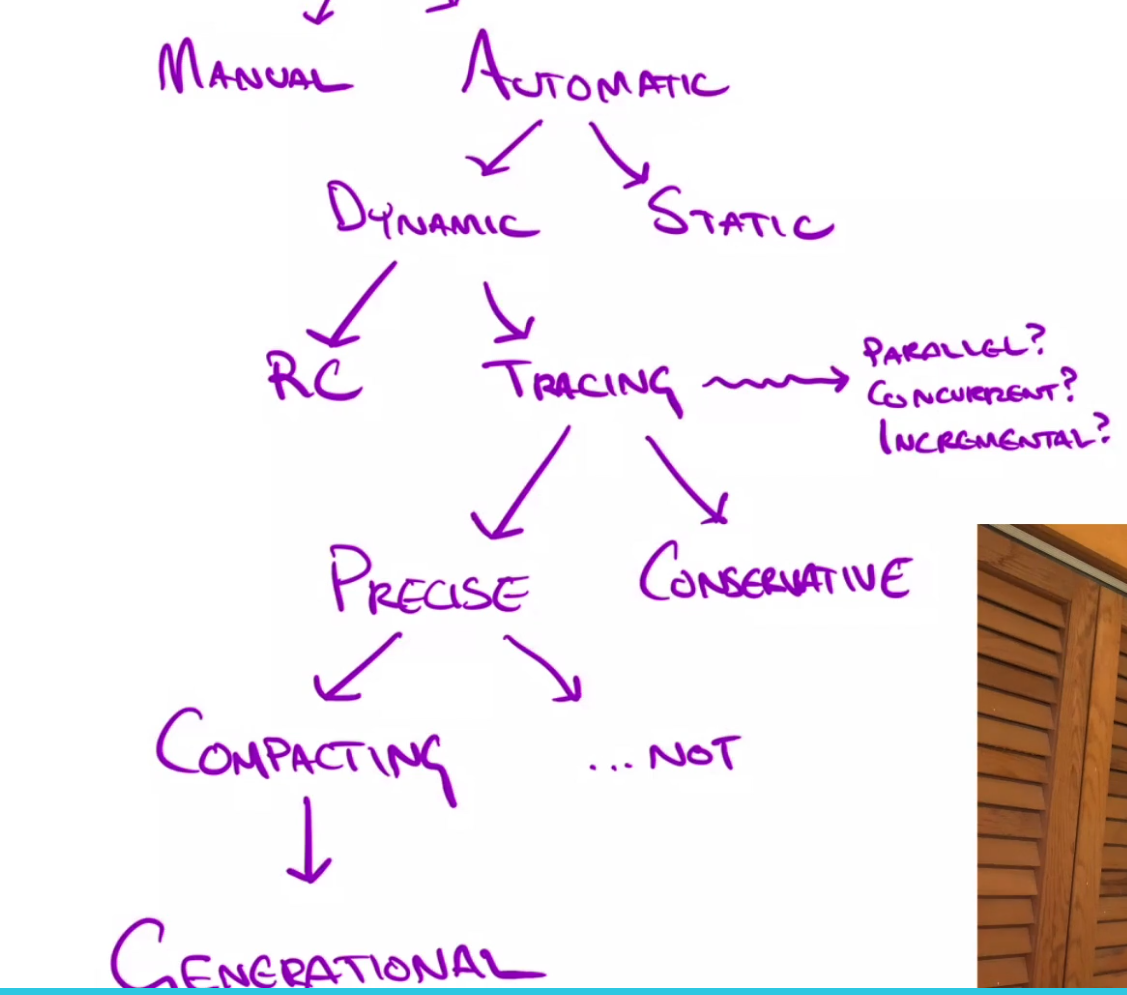 MANUAL AUTOMATIC
DYNAMIC STATIC
RC TRACING PARALLEL?
CONCURRENT?
INCREMENTAL?
PRECISE CONSERVATIVE
COMPACTING ...NOT
GENERATIONAL